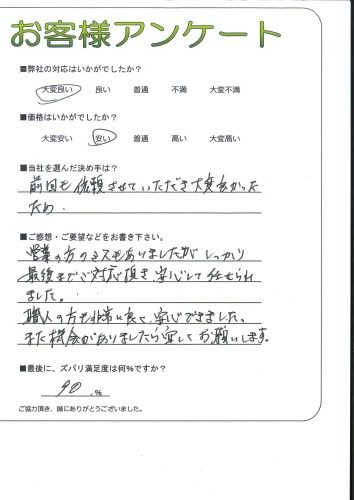 お客様アンケート
■弊社の対応はいかがでしたか？
大変良い 良い 普通 不満 大変不満
■価格はいかがでしたか？
大変安い 安い 普通 高い 大変高い
■当社を選んだ決め手は？
前回も依頼させていただき大変良かった
ため.
■ご感想・ご要望などをお書き下さい。
営業の方のミスもありましたが しっかり
最後までご対応頂き、安心して任せられ
ました。
職人の方も非常に良く、安心できました。
また機会がありましたら安心してお願いします。
■最後に、ズバリ満足度は何%ですか？
90.%
ご協力頂き、誠にありがとうございました。